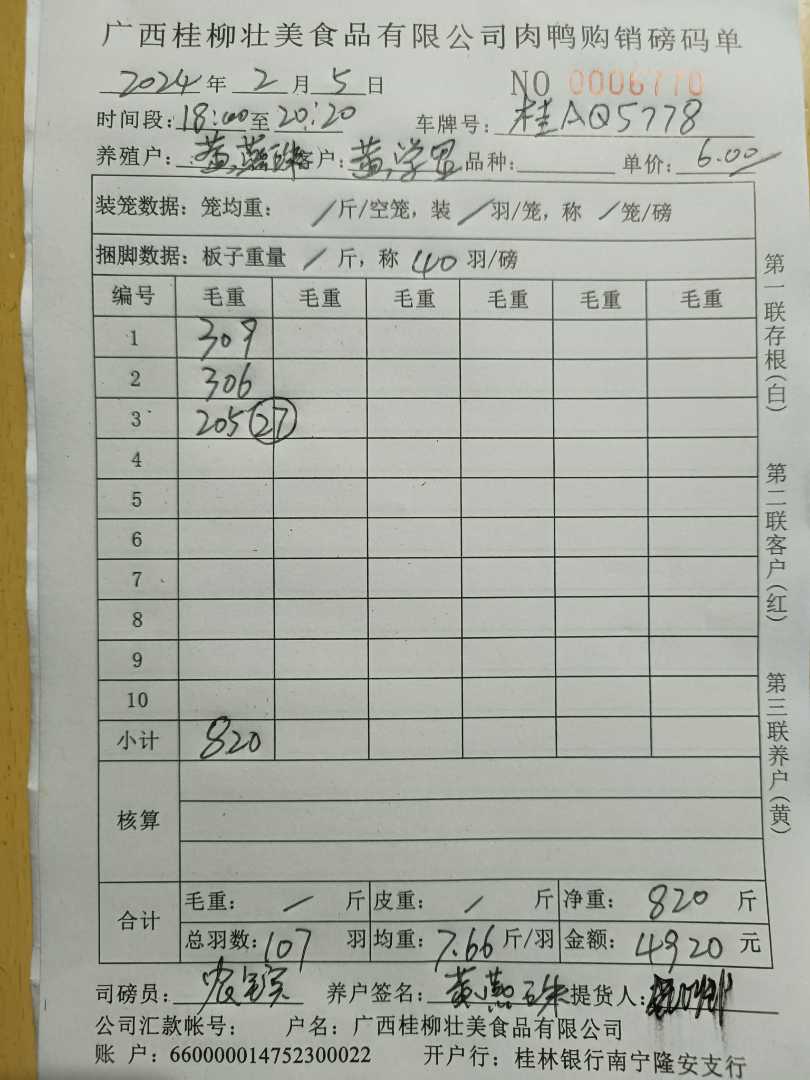 广西桂柳壮美食品有限公司肉鸭购销磅码单
2024年2月5日 NO 0006770
时间段:18:00至20:20 车牌号:桂AQ5778
养殖户:黄燕珠 客户:黄学 品种: 单价:6.00
装笼数据:笼均重: /斤/空笼,装/羽/笼,称/笼/磅
捆脚数据:板子重量 /斤,称40羽/磅
编号 毛重 毛重 毛重 毛重 毛重 毛重
1 309
2 306
3 205 27
4
5
6
7
8
9
10
小计 820
核算
合计 毛重: / 斤 皮重: / 斤 净重: 820 斤
总羽数:107羽 均重:7.66斤/羽 金额:4920元
司磅员: 养户签名:黄燕珠 提货人:
公司汇款帐号: 户名:广西桂柳壮美食品有限公司
账 户:660000014752300022 开户行:桂林银行南宁隆安支行
第一联存根(白)
第二联客户(红)
第三联养户(黄)